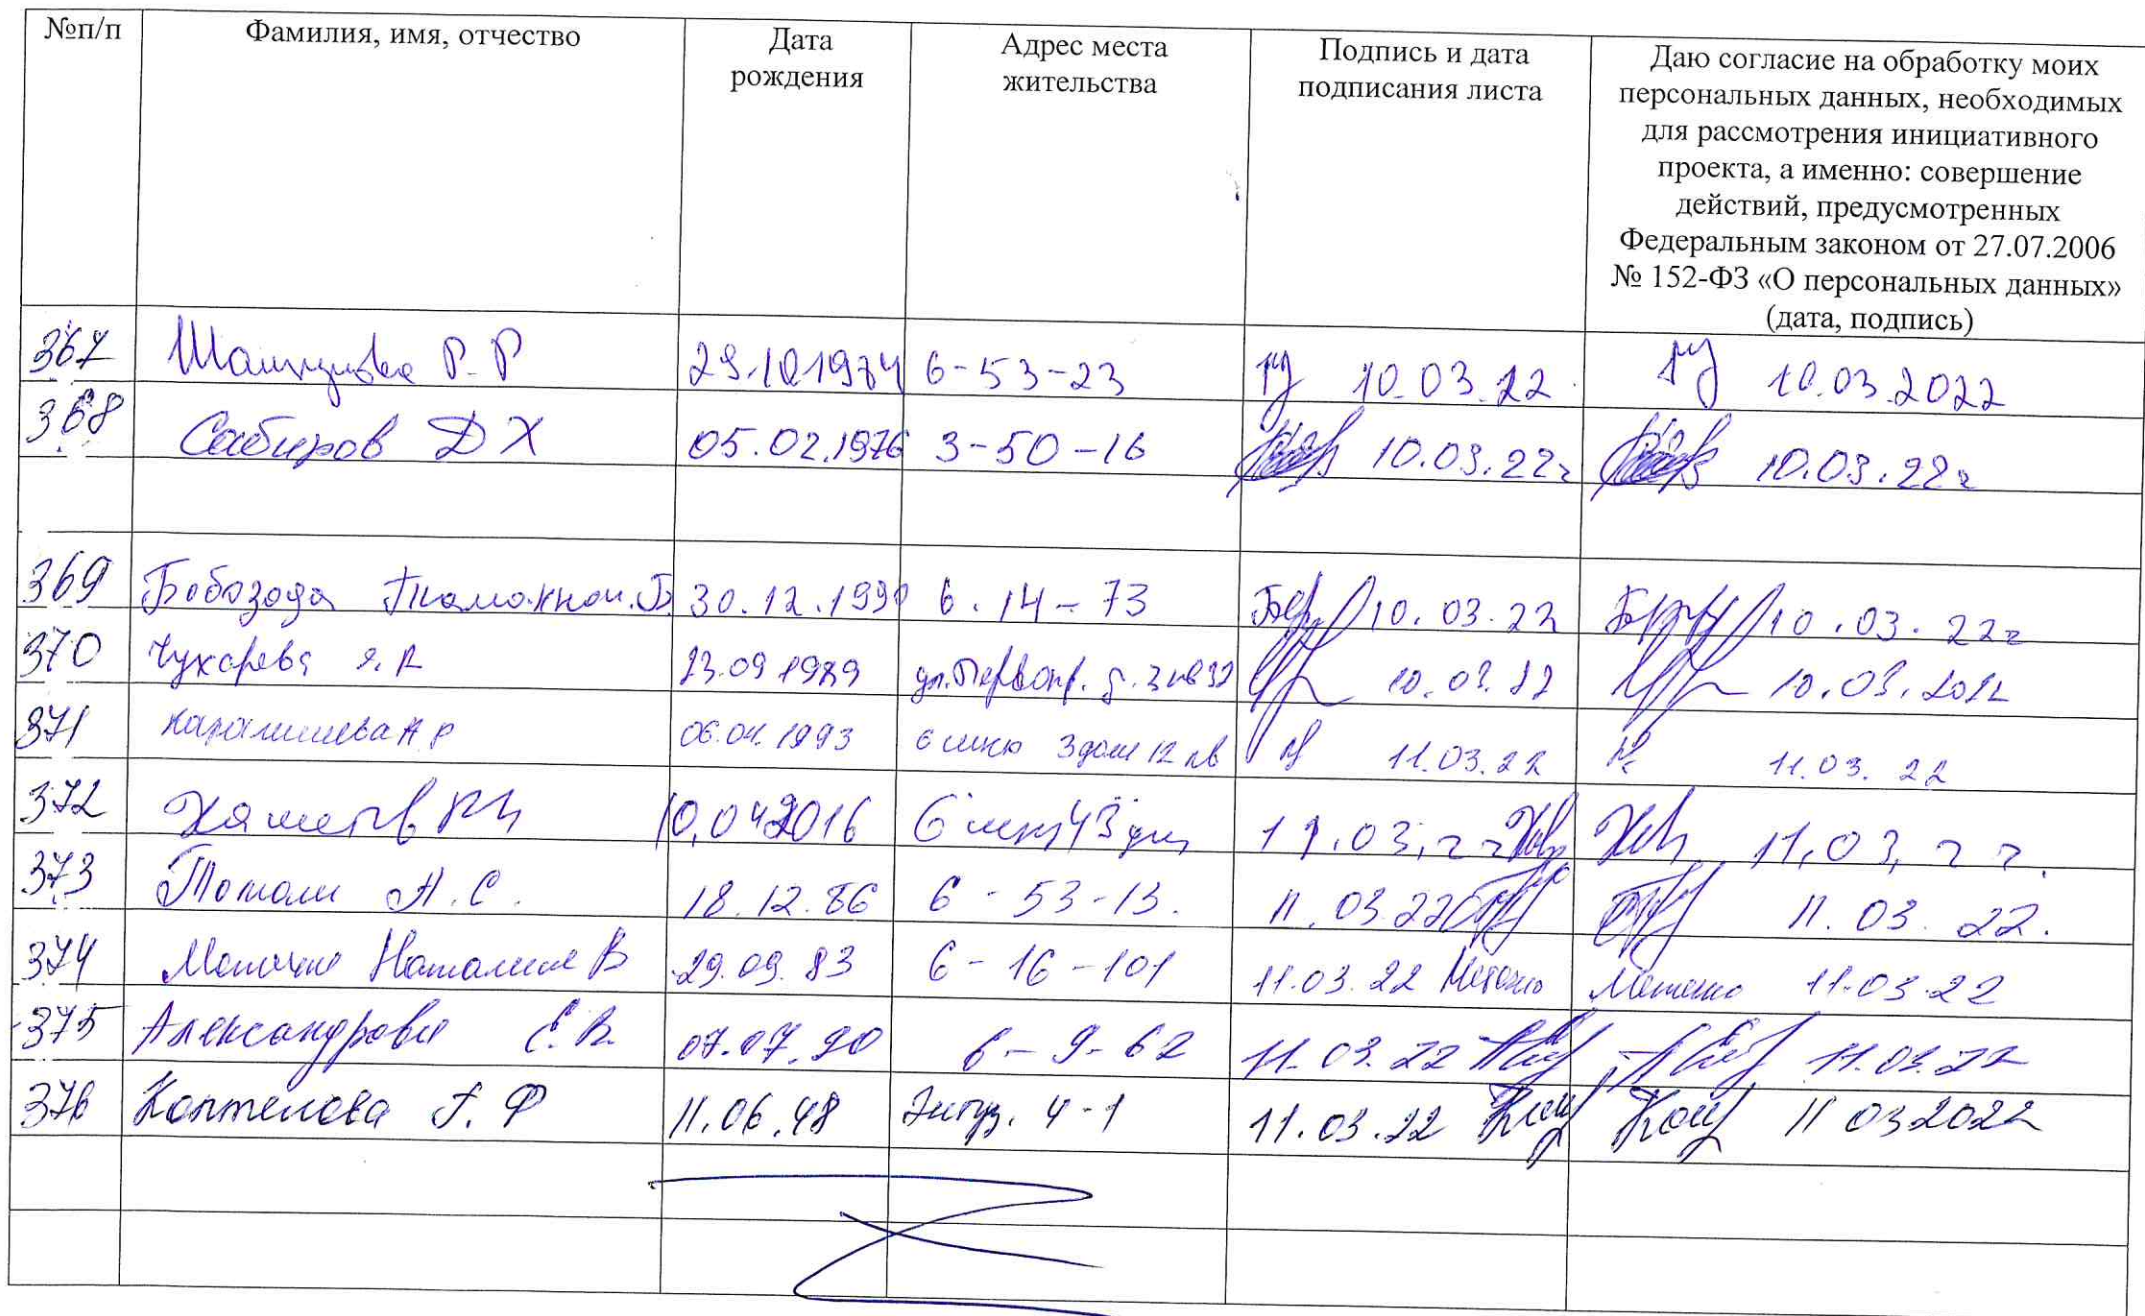 №п/п Фамилия, имя, отчество Дата рождения Адрес места жительства Подпись и дата подписания листа Даю согласие на обработку моих персональных данных, необходимых для рассмотрения инициативного проекта, а именно: совершение действий, предусмотренных Федеральным законом от 27.07.2006 № 152-ФЗ «О персональных данных» (дата, подпись)
367 Р. Р 6-53-23 10.03.22 10.03.2022
368 Сабиров Д Х 05.02.1976 3-50-16 10.03.22г 10.03.22г
369 Бобозода Б. 30.12.1990 6.14-73 10.03.22 10.03.22г
370 Чухарева 23.09 1989 10.03.22 10.03.2022
371 А Р 06.04.1993 6 мкр 3 дом 12 кв 11.03.22 11.03.22
372 11.03,22 11,03,22
373 А.С. 18.12.86 6-53-13. 11.03.22 11.03.22.
374 Наталия В 29.09.83 6-16-101 11.03.22 11.03.22
375 Александрова Е.В. 07.07.90 6-9-62 11.03.22 11.03.22
376 Коптелова Ф 11.06.48 Энтуз. 4-1 11.03.22 11 03 2022